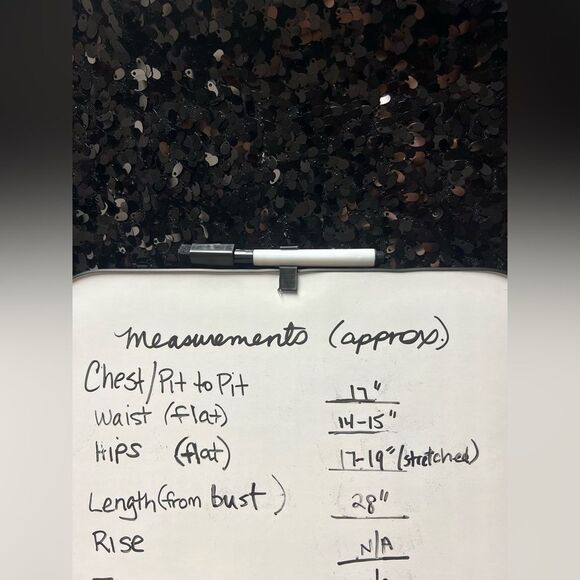 measurements (approx.)
Chest/Pit to Pit 17"
waist (flat) 14-15"
HIPS (flat) 17-19" (stretched)
Length (from bust) 28"
RISE N/A